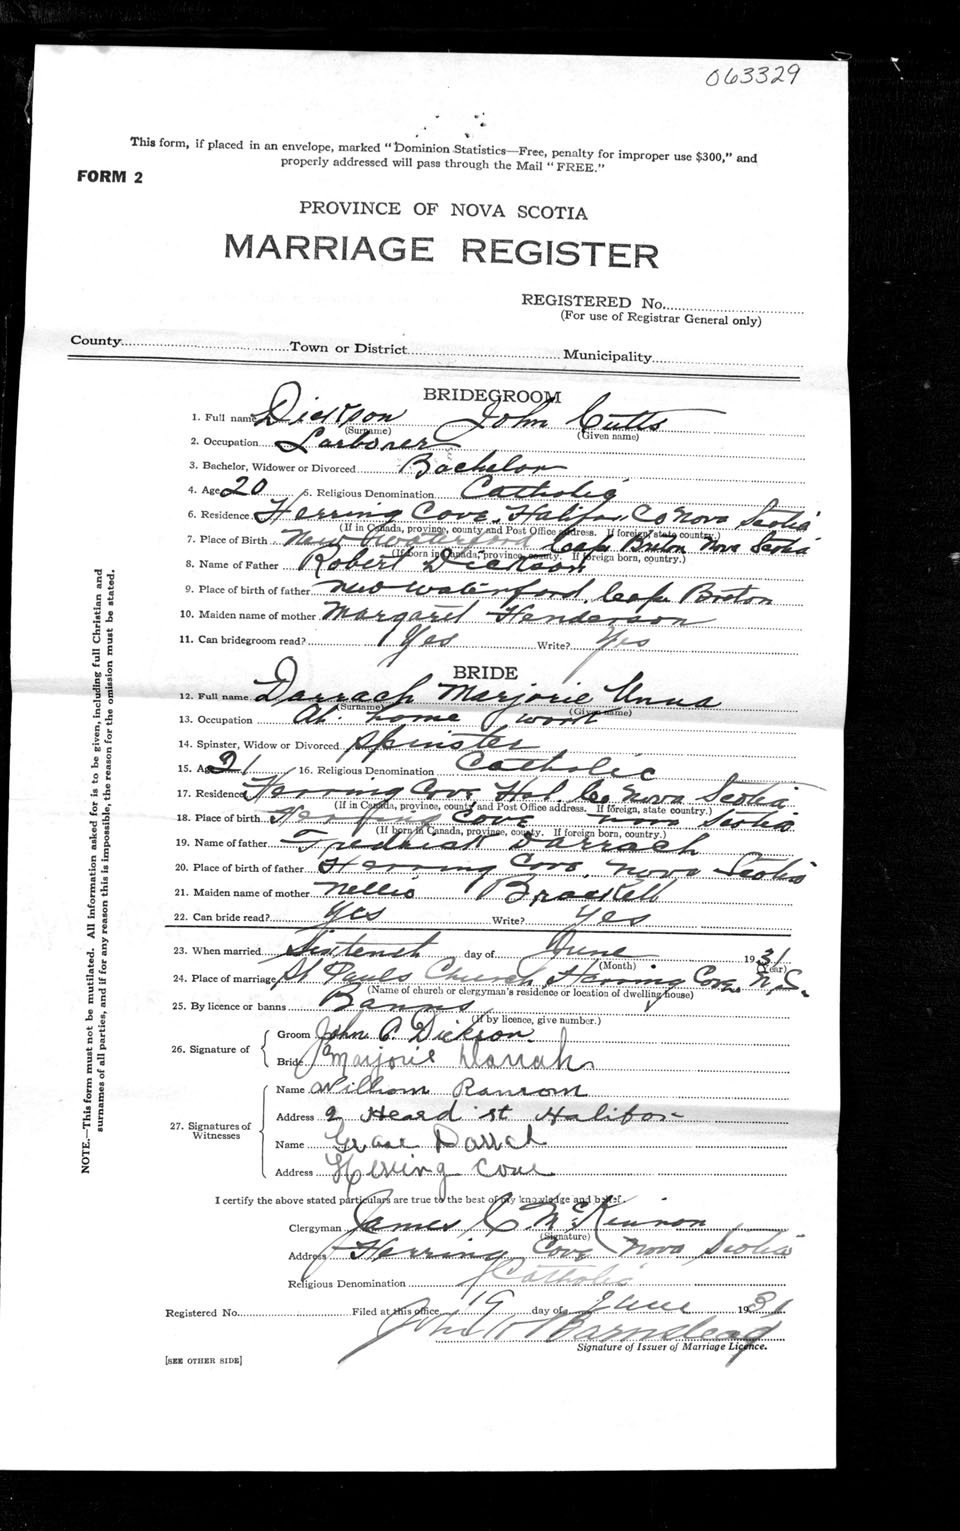 063329
This form, if placed in an envelope, marked "Dominion Statistics—Free, penalty for improper use $300," and
properly addressed will pass through the Mail "FREE."
FORM 2
PROVINCE OF NOVA SCOTIA
MARRIAGE REGISTER
REGISTERED No.
(For use of Registrar General only)
County Town or District Municipality
BRIDEGROOM
1. Full name Dickson John Cutts
(Surname) (Given name)
2. Occupation Larborer
3. Bachelor, Widower or Divorced Bachelor
4. Age 20 5. Religious Denomination Catholic
6. Residence Herring Cove, Halifax Co Nova Scotia
(If in Canada, province, county and Post Office address. If foreign, state country.)
7. Place of Birth New Waterford Cape Breton Nova Scotia
(If born in Canada, province, county. If foreign born, country.)
8. Name of Father Robert Dickson
9. Place of birth of father New Waterford, Cape Breton
10. Maiden name of mother Margaret Henderson
11. Can bridegroom read? Yes Write? Yes
BRIDE
12. Full name Darrach Marjorie
(Surname) (Given name)
13. Occupation At. home work
14. Spinster, Widow or Divorced Spinster
15. Age 21 16. Religious Denomination Catholic
17. Residence Herring Cove Hal. Co Nova Scotia
(If in Canada, province, county and Post Office address. If foreign, state country.)
18. Place of birth Herring Cove Nova Scotia
(If born in Canada, province, county. If foreign born, country.)
19. Name of father Fredrick Darrach
20. Place of birth of father Herring Cove, Nova Scotia
21. Maiden name of mother Nellie
22. Can bride read? Yes Write? Yes
23. When married day of June 1931
(Month) (Year)
24. Place of marriage St Pauls Church, Herring Cove, N.S.
(Name of church or clergyman's residence or location of dwelling house)
25. By licence or banns Banns
(If by licence, give number.)
26. Signature of Groom John C. Dickson.
Bride Marjorie Darrah
27. Signatures of Witnesses Name William Ransom
Address 2 Heard st Halifax
Name Grace
Address Herring Cove
I certify the above stated particulars are true to the best of my knowledge and belief.
Clergyman James C McKinnon
(Signature)
Address Herring Cove Nova Scotia
Religious Denomination Catholic
Registered No. Filed at this office 19 day of June 1931
John Barnstead
Signature of Issuer of Marriage Licence.
[SEE OTHER SIDE]
NOTE.—This form must not be mutilated. All Information asked for is to be given, including full Christian and
surnames of all parties, and if for any reason this is impossible, the reason for the omission must be stated.